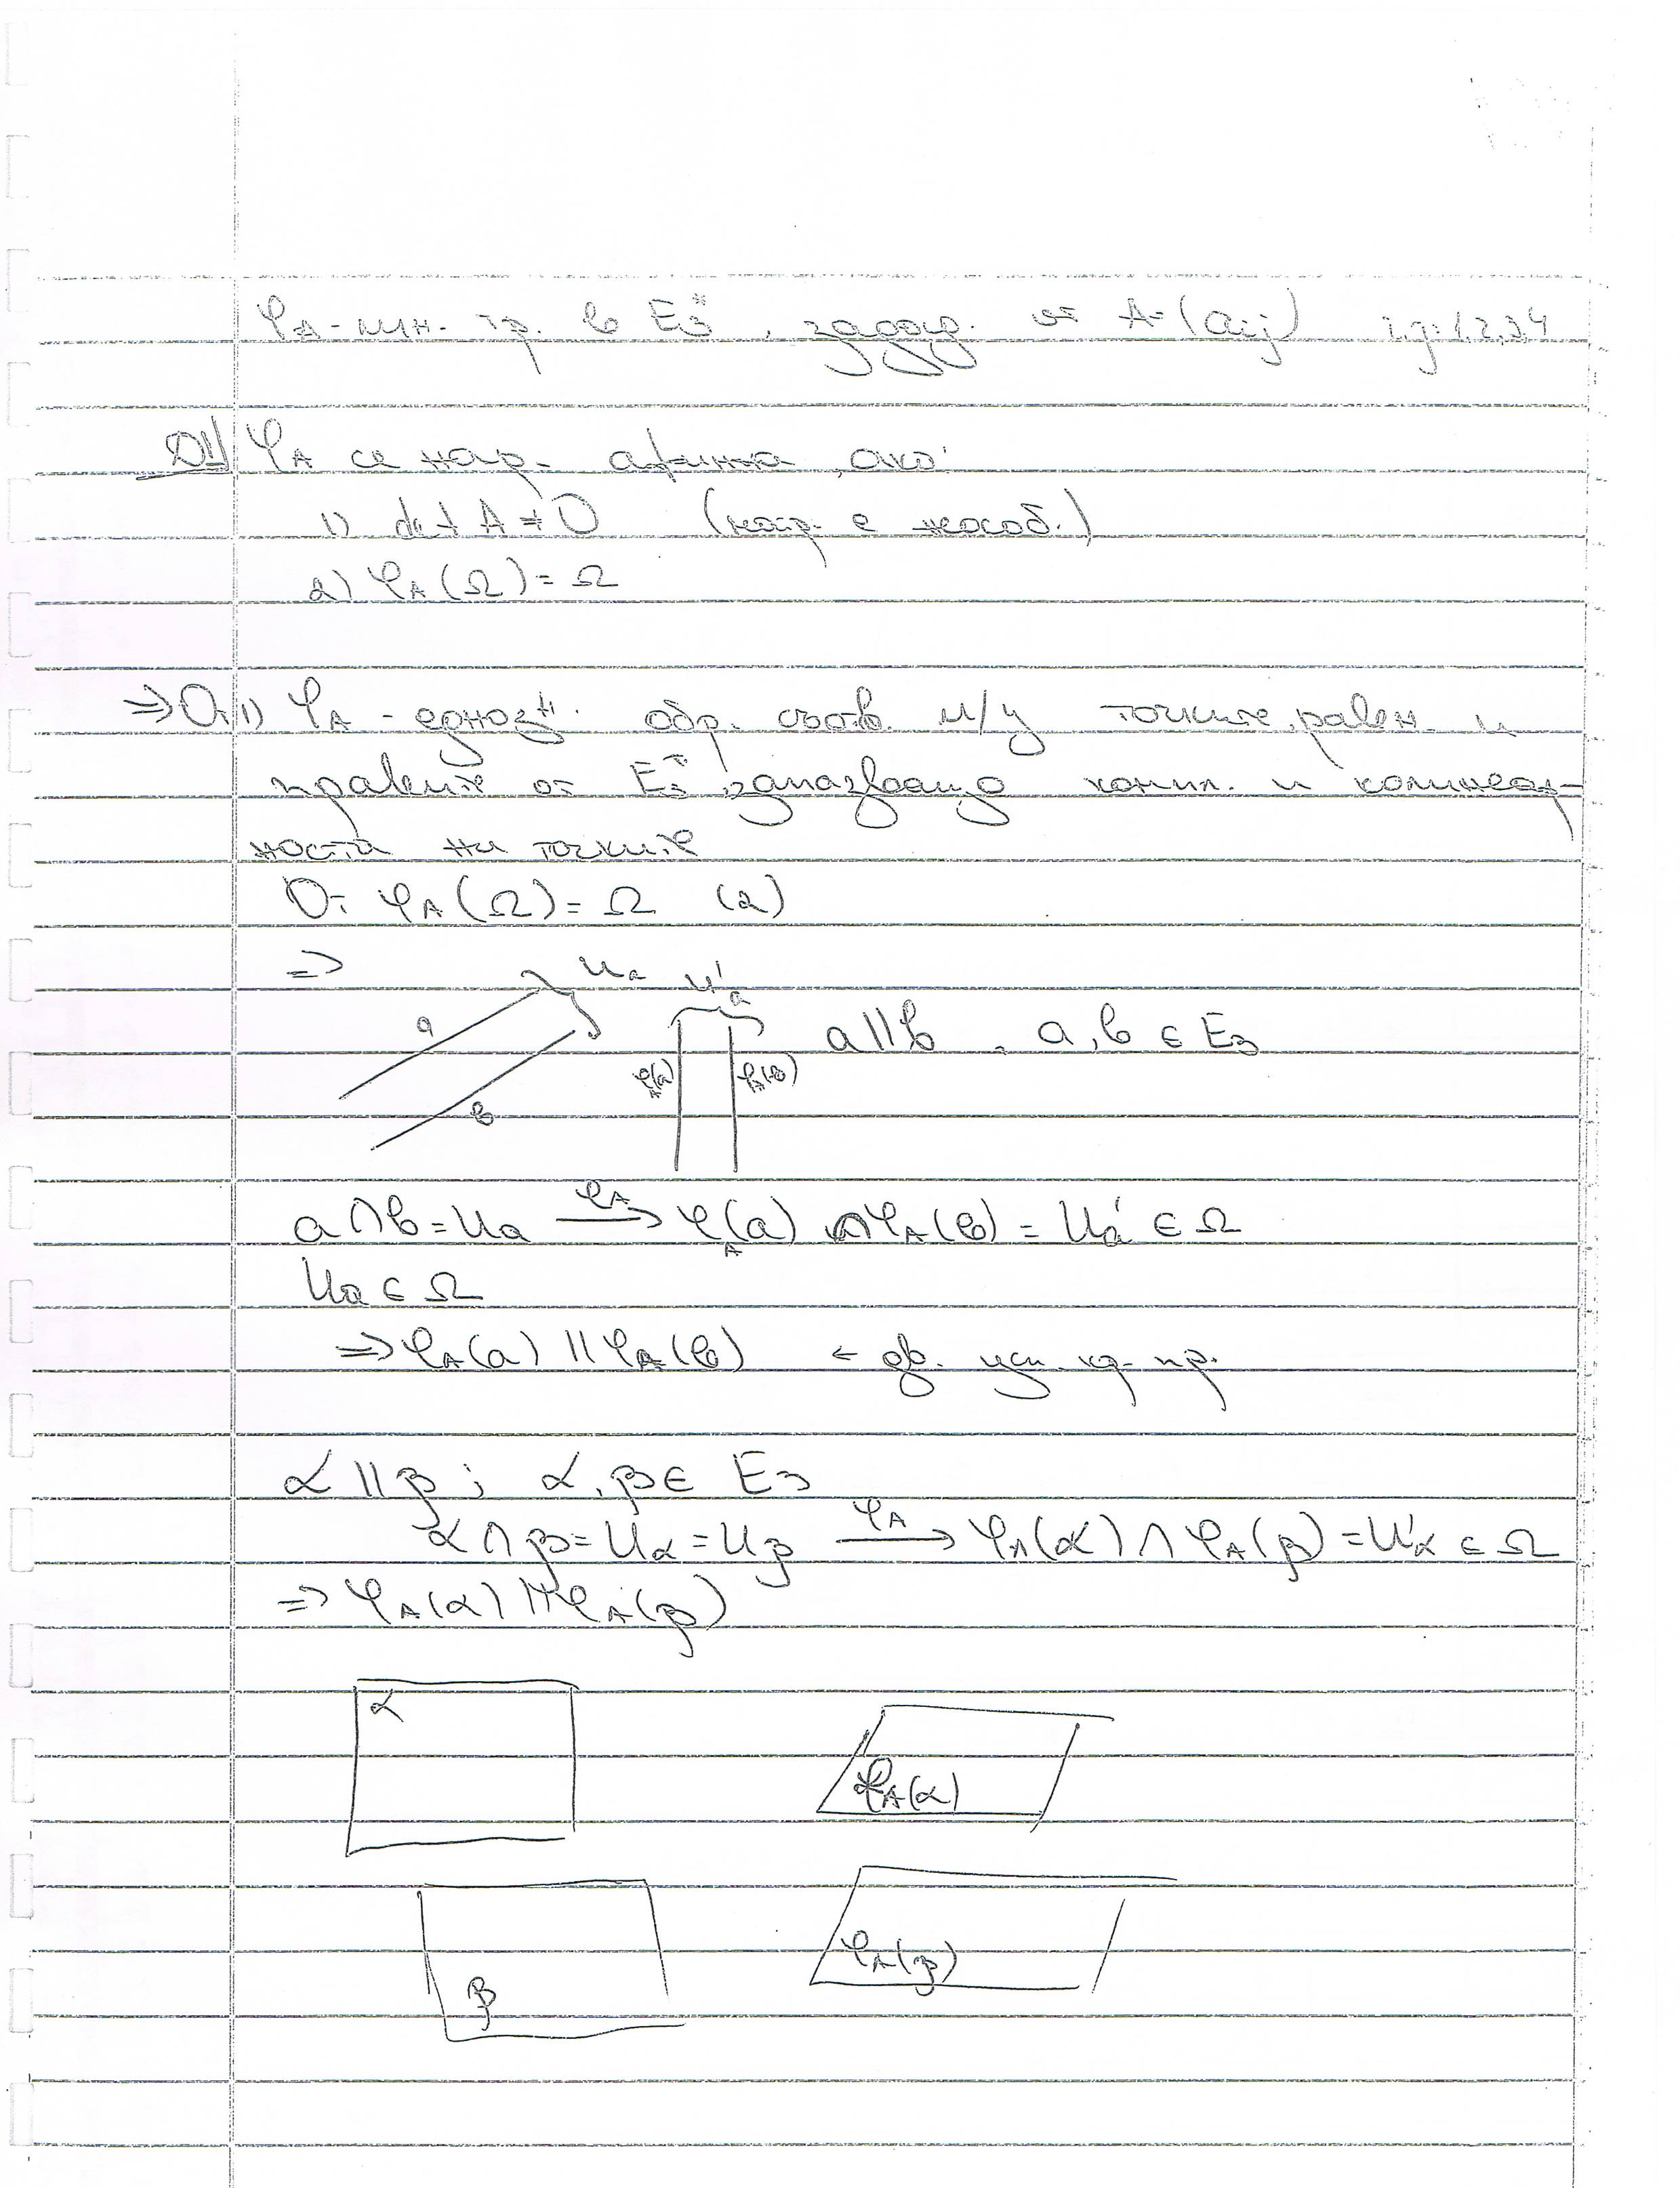 φA - лин. тр. в E3*, зададена от A=(aij) i,j=1,2,3,4
D1/ φA се нар. афинна, ако:
1) det A ≠ 0 (нар. е неособ.)
2) φA(Ω) = Ω
⇒ От 1) φA - еднозн. обр. съотв. м/у точките, равн. и
правите от E3*, запазващо компл. и колинеар-
ността на точките
От φA(Ω) = Ω (2)
⇒ Ua U'a
a φA(a) φA(b) a || b , a, b ∈ E3
b
a ∩ b = Ua φA→ φA(a) ∩ φA(b) = U'a ∈ Ω
Ua ∈ Ω
⇒ φA(a) || φA(b) ← дв. усп. пр.
α || β ; α, β ∈ E3
α ∩ β = Uα = Uβ φA→ φA(α) ∩ φA(β) = U'α ∈ Ω
⇒ φA(α) || φA(β)
α
φA(α)
φA(β)
β